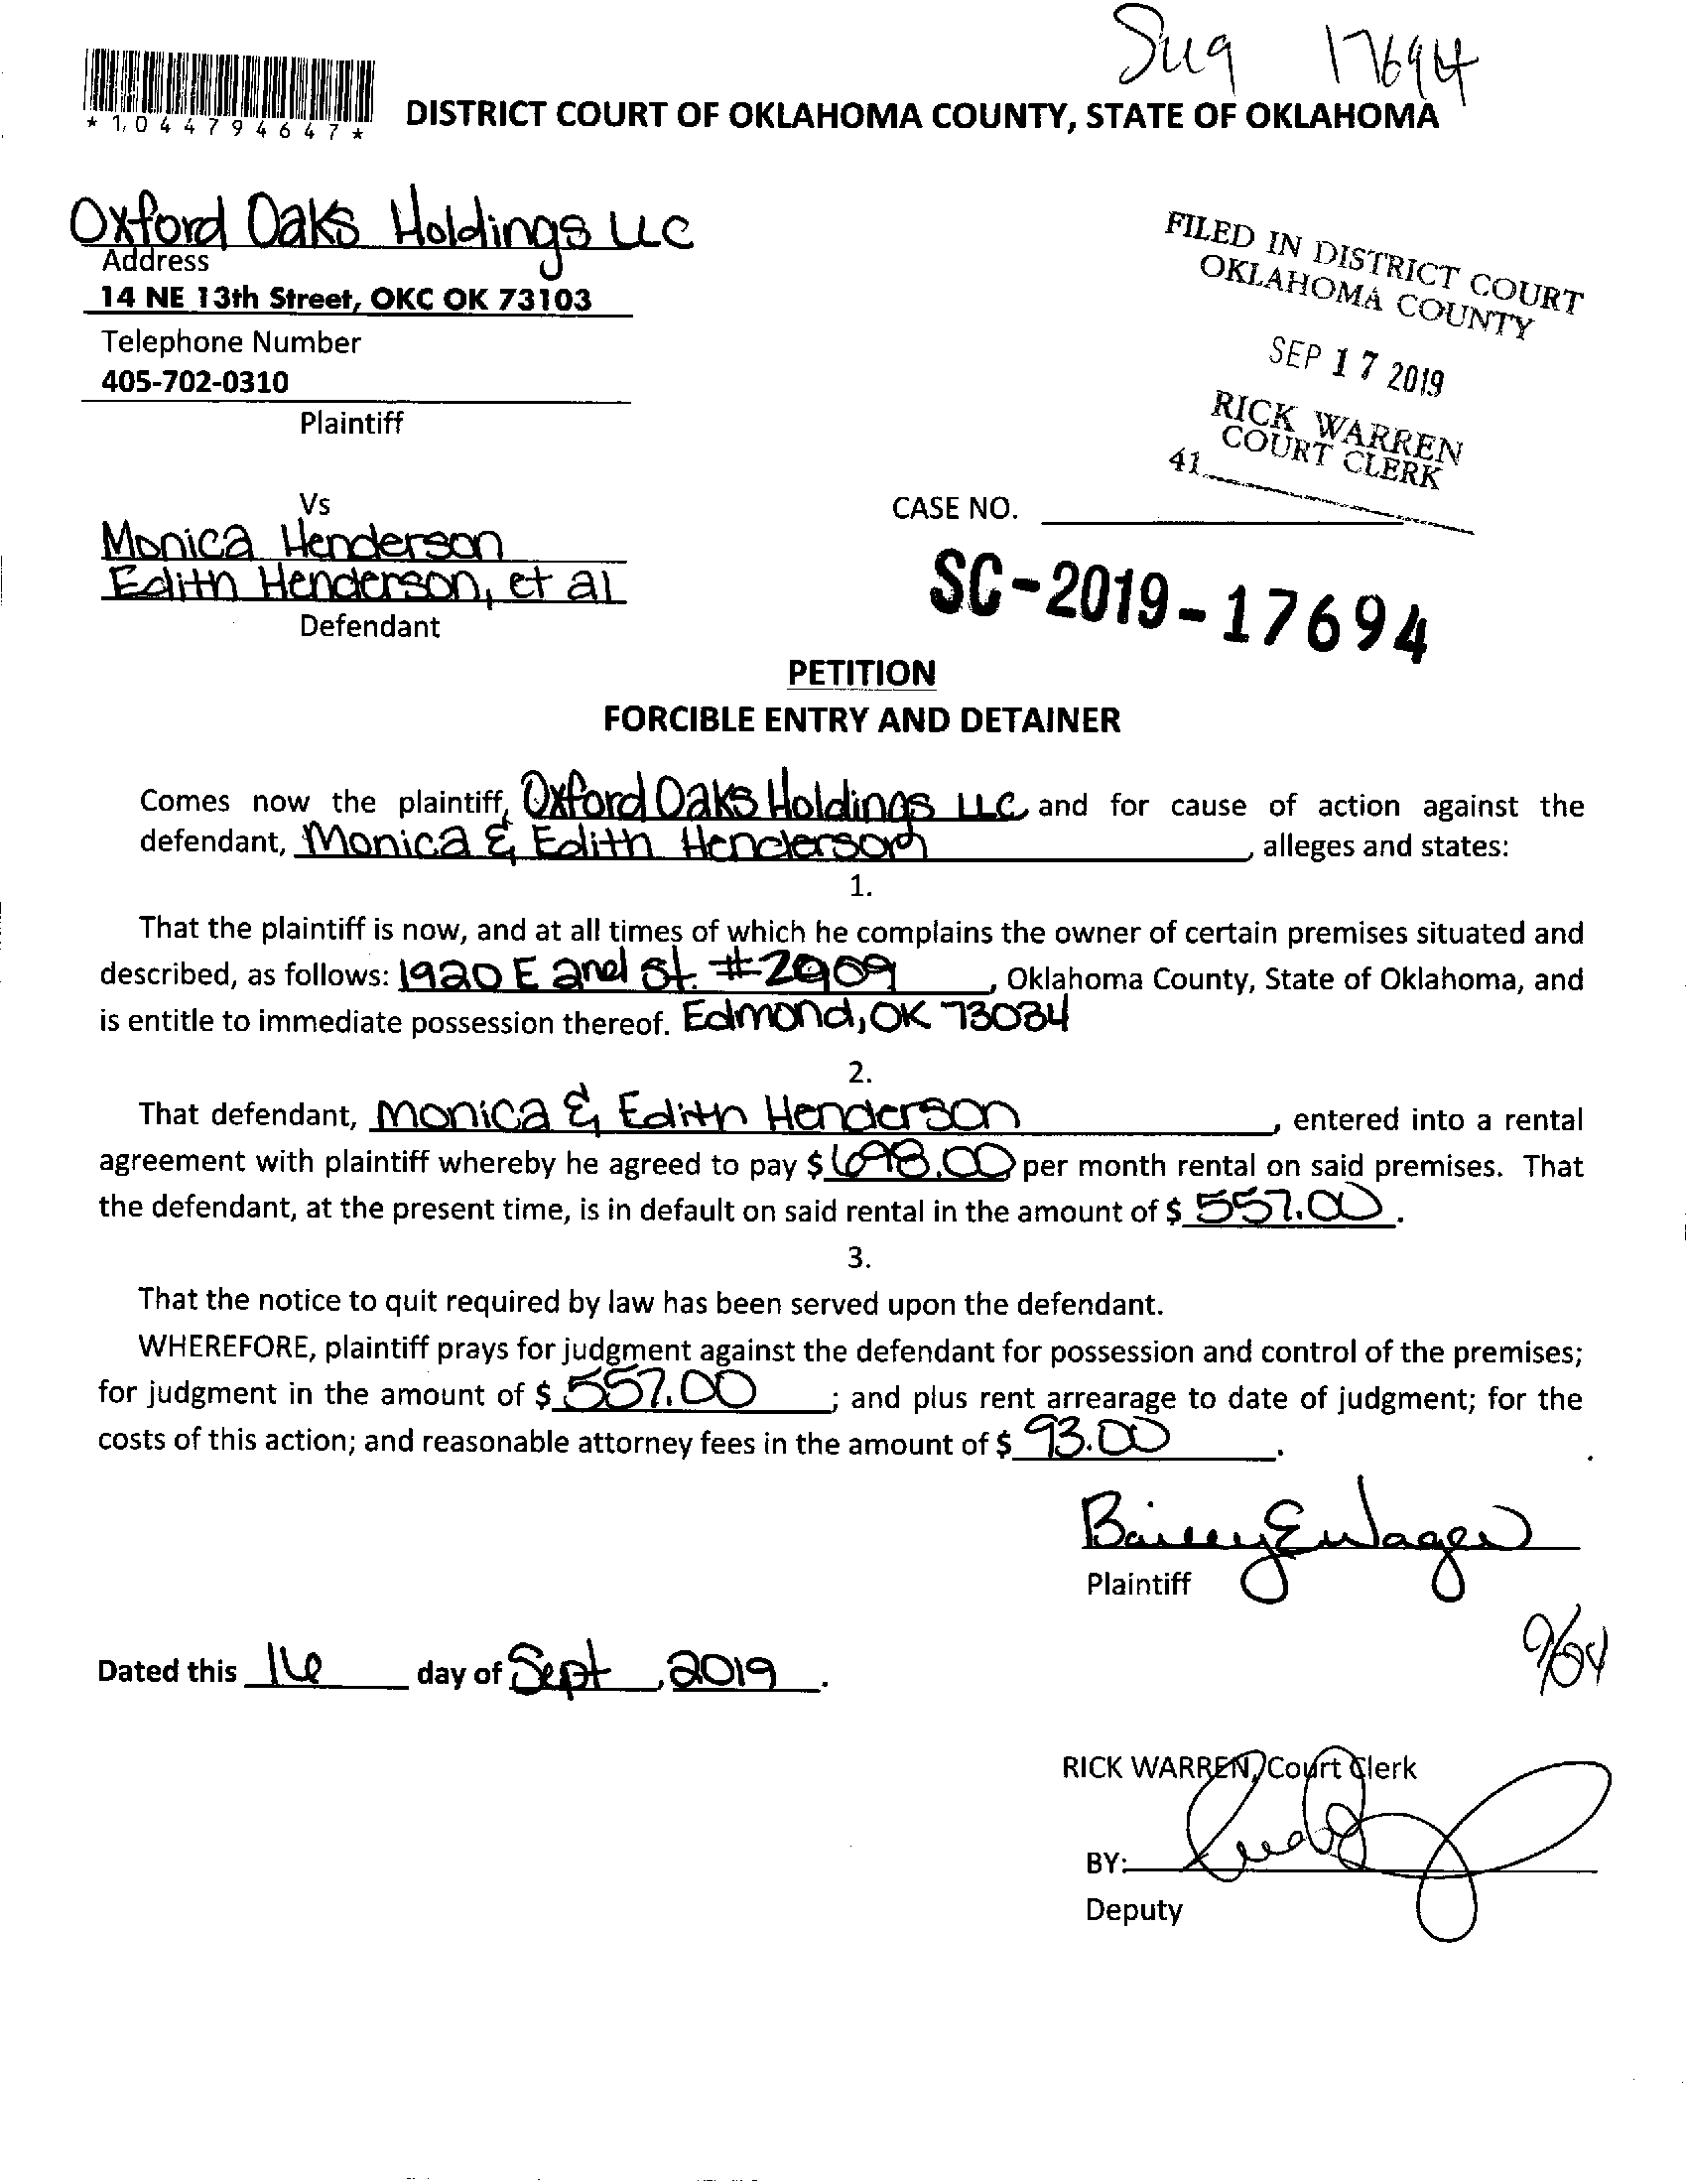 17694
*1044794647*
DISTRICT COURT OF OKLAHOMA COUNTY, STATE OF OKLAHOMA
Oxford Oaks Holdings LLC
Address
14 NE 13th Street, OKC OK 73103
Telephone Number
405-702-0310
Plaintiff
FILED IN DISTRICT COURT
OKLAHOMA COUNTY
SEP 17 2019
RICK WARREN
COURT CLERK
41
Vs
Monica Henderson
Edith Henderson, et al
Defendant
CASE NO.
SC-2019-17694
PETITION
FORCIBLE ENTRY AND DETAINER
Comes now the plaintiff, Oxford Oaks Holdings LLC and for cause of action against the
defendant, Monica & Edith Henderson, alleges and states:
1.
That the plaintiff is now, and at all times of which he complains the owner of certain premises situated and
described, as follows: 1920 E 2nd St. #2909, Oklahoma County, State of Oklahoma, and
is entitle to immediate possession thereof. Edmond, OK 73034
2.
That defendant, Monica & Edith Henderson, entered into a rental
agreement with plaintiff whereby he agreed to pay $ 698.00 per month rental on said premises. That
the defendant, at the present time, is in default on said rental in the amount of $ 557.00.
3.
That the notice to quit required by law has been served upon the defendant.
WHEREFORE, plaintiff prays for judgment against the defendant for possession and control of the premises;
for judgment in the amount of $ 557.00; and plus rent arrearage to date of judgment; for the
costs of this action; and reasonable attorney fees in the amount of $ 93.00.
Plaintiff
Dated this 16 day of Sept, 2019.
RICK WARREN, Court Clerk
BY:
Deputy